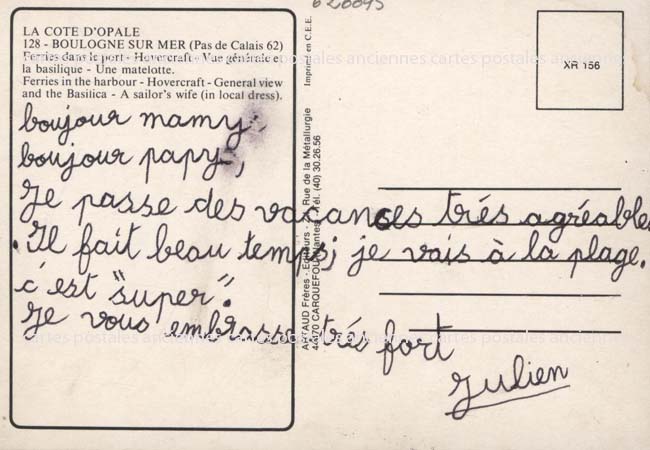 620095
LA COTE D'OPALE
128 - BOULOGNE SUR MER (Pas de Calais 62)
Ferries dans le port - Hovercraft - Vue générale et
la basilique - Une matelotte.
Ferries in the harbour - Hovercraft - General view
and the Basilica - A sailor's wife (in local dress).
Imprimé en C.E.E.
XR 156
boujour mamy,
boujour papy,
Je passe des vacances trés agréables
. Il fait beau temps; je vais à la plage.
c'est "super".
Je vous embrasse trés fort
Julien
ARTAUD Frères - Editeurs - Rue de la Métallurgie
44470 CARQUEFOU Nantes Tél. (40) 30.26.56
cartes postales anciennes cartes postales anciennes cartes postales anciennes
cartes postales anciennes cartes postales anciennes cartes postales anciennes